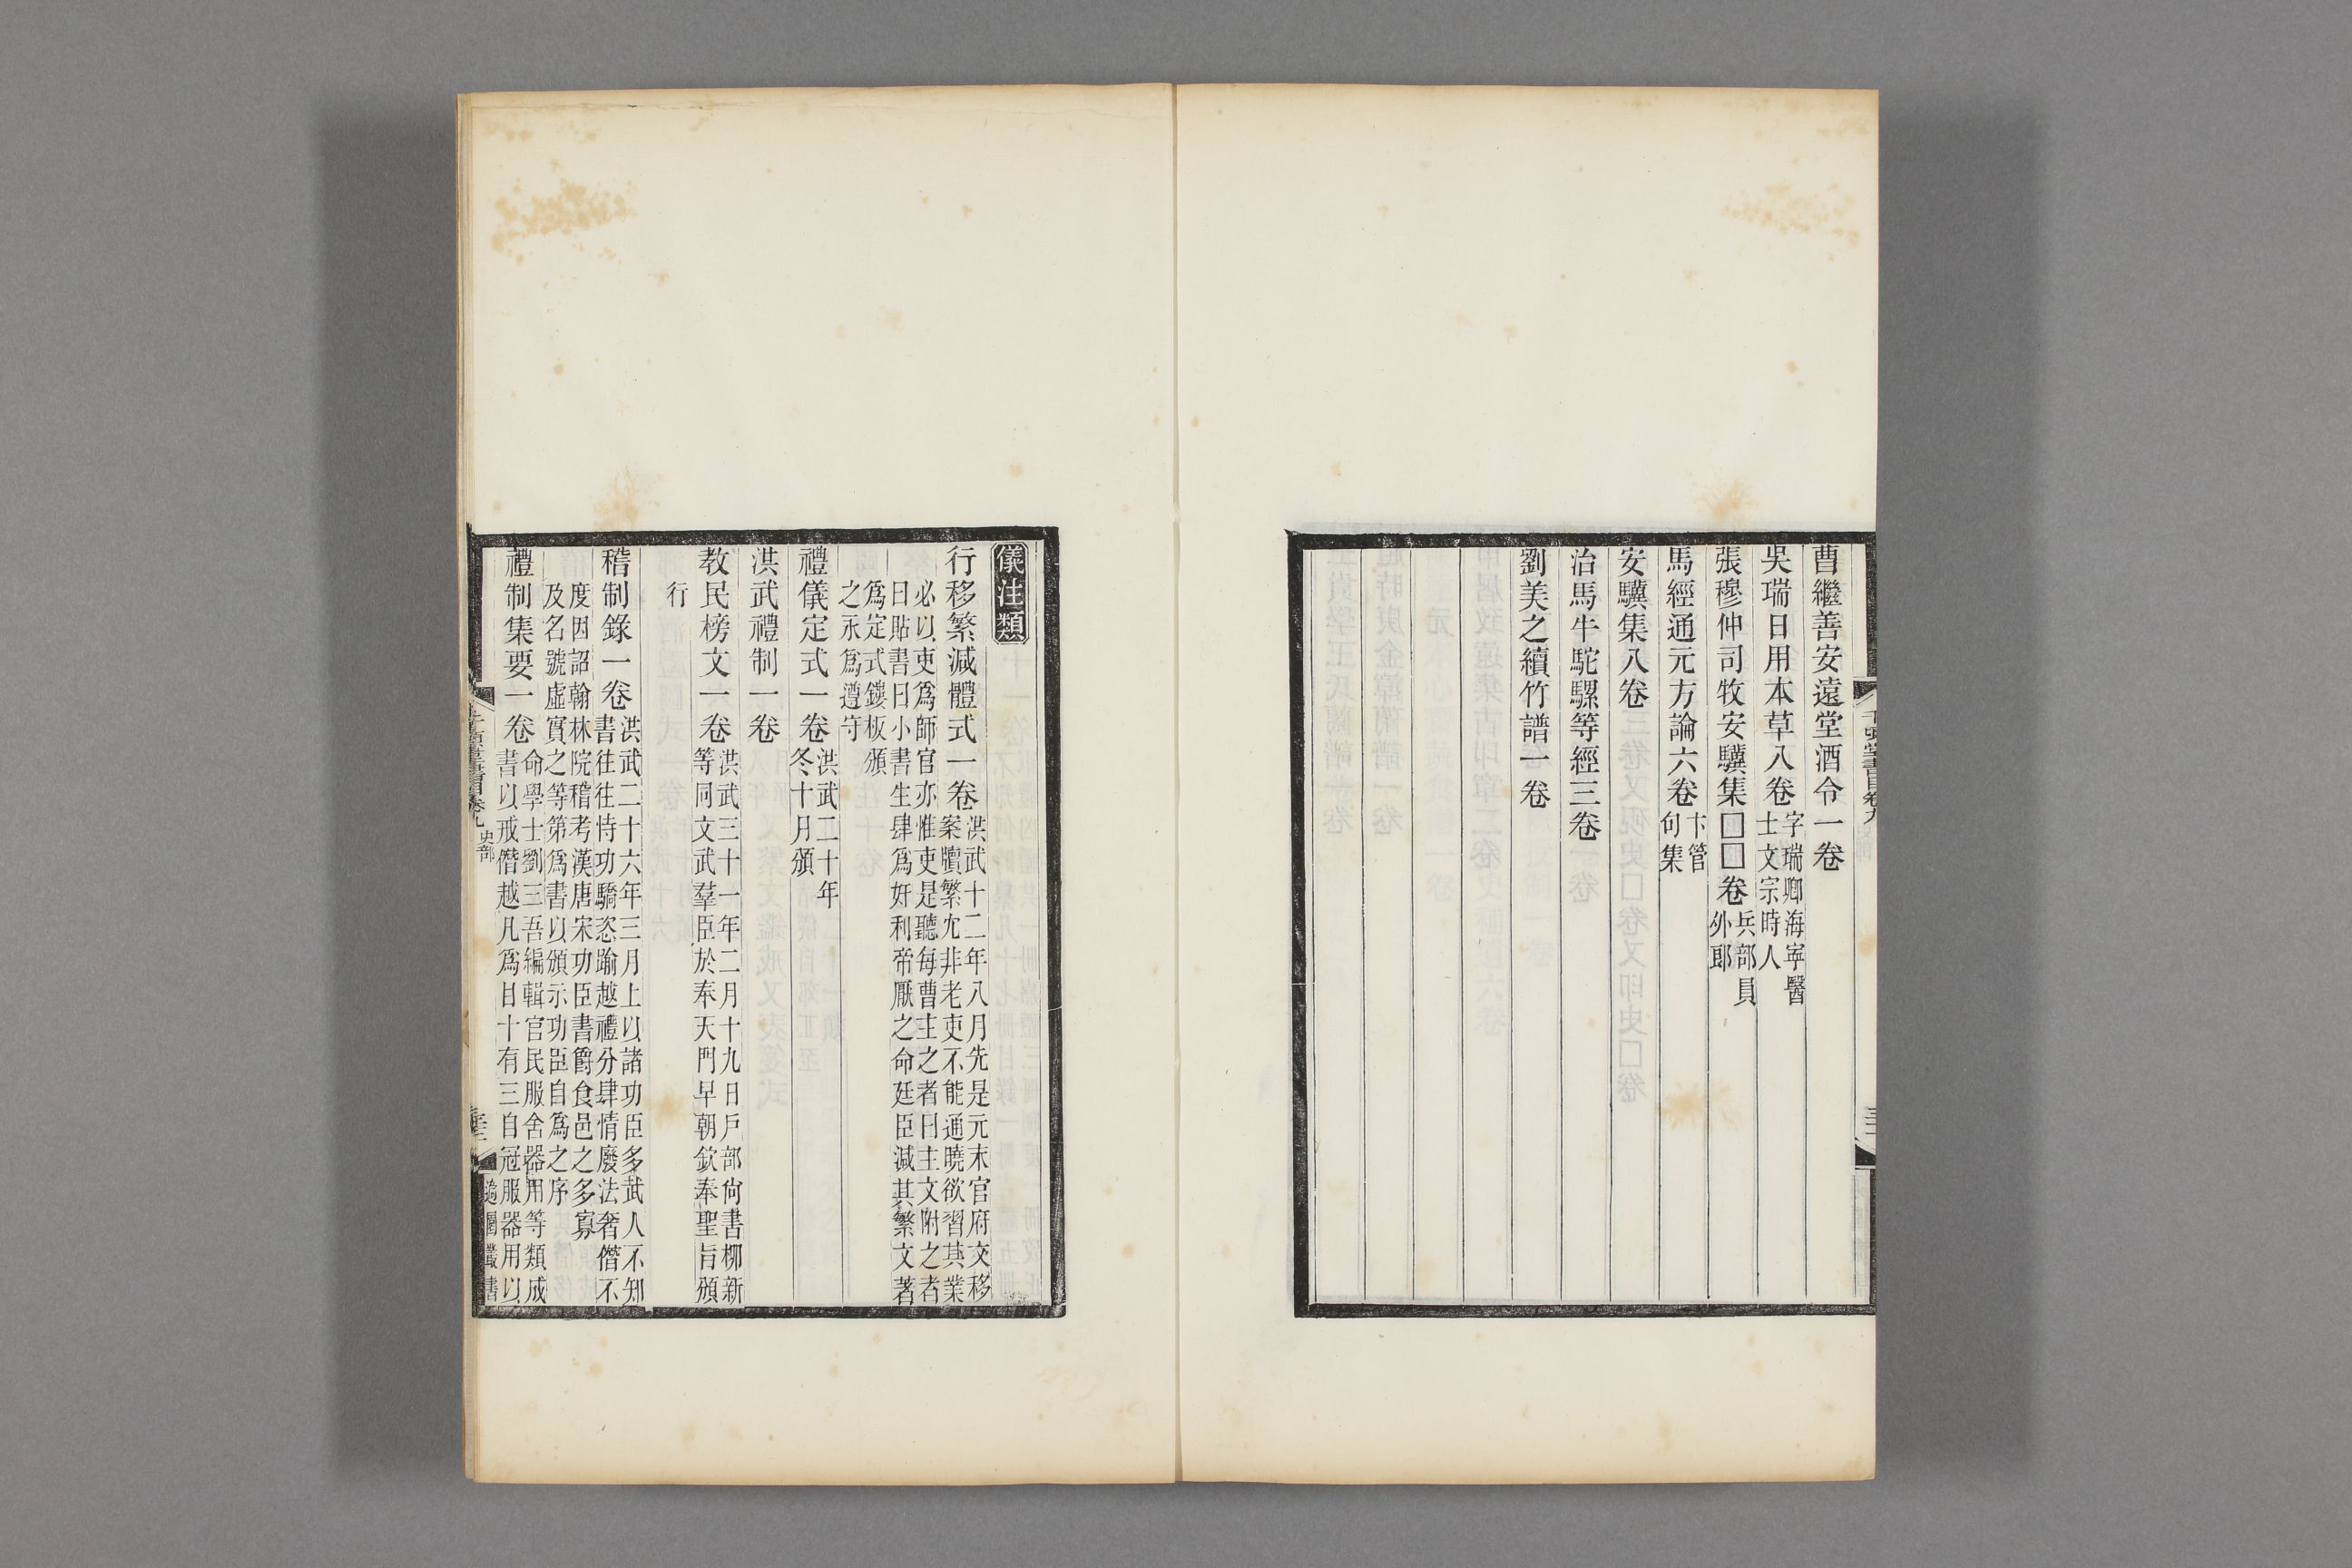 曹繼善安遠堂酒令一卷
吳瑞日用本草八卷
字瑞卿海寧醫
士文宗時人
張穆仲司牧安驥集□□卷
兵部員
外郎
馬經通元方論六卷
卞管
句集
安驥集八卷
治馬牛駝騾等經三卷
劉美之續竹譜一卷
儀注類
行移繁減體式一卷
洪武十二年八月先是元末官府文移
案牘繁冗非老吏不能通曉欲習其業
必以吏爲師官亦惟吏是聽每曹主之者曰主文附之者
曰貼書曰小書生肆爲奸利帝厭之命廷臣減其繁文著
爲定式鏤板頒
之永爲遵守
禮儀定式一卷
洪武二十年
冬十月頒
洪武禮制一卷
教民榜文一卷
洪武三十一年二月十九日戶部尚書郁新
等同文武羣臣於奉天門早朝欽奉聖旨頒
行
稽制錄一卷
洪武二十六年三月上以諸功臣多武人不知
書往往恃功驕恣踰越禮分肆情廢法奢僭不
度因詔翰林院稽考漢唐宋功臣書爵食邑之多寡
及名號虛實之等第爲書以頒示功臣自爲之序
禮制集要一卷
命學士劉三吾編輯官民服舍器用等類成
書以戒僭越凡爲目十有三自冠服器用以
千頃堂書目卷九
史部
適園叢書